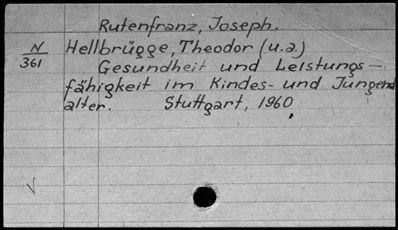 Rutenfranz, Joseph.
N
361
Hellbrügge, Theodor (u.a.)
Gesundheit und Leistungs-
fähigkeit im Kindes- und Jungend
alter. Stuttgart, 1960